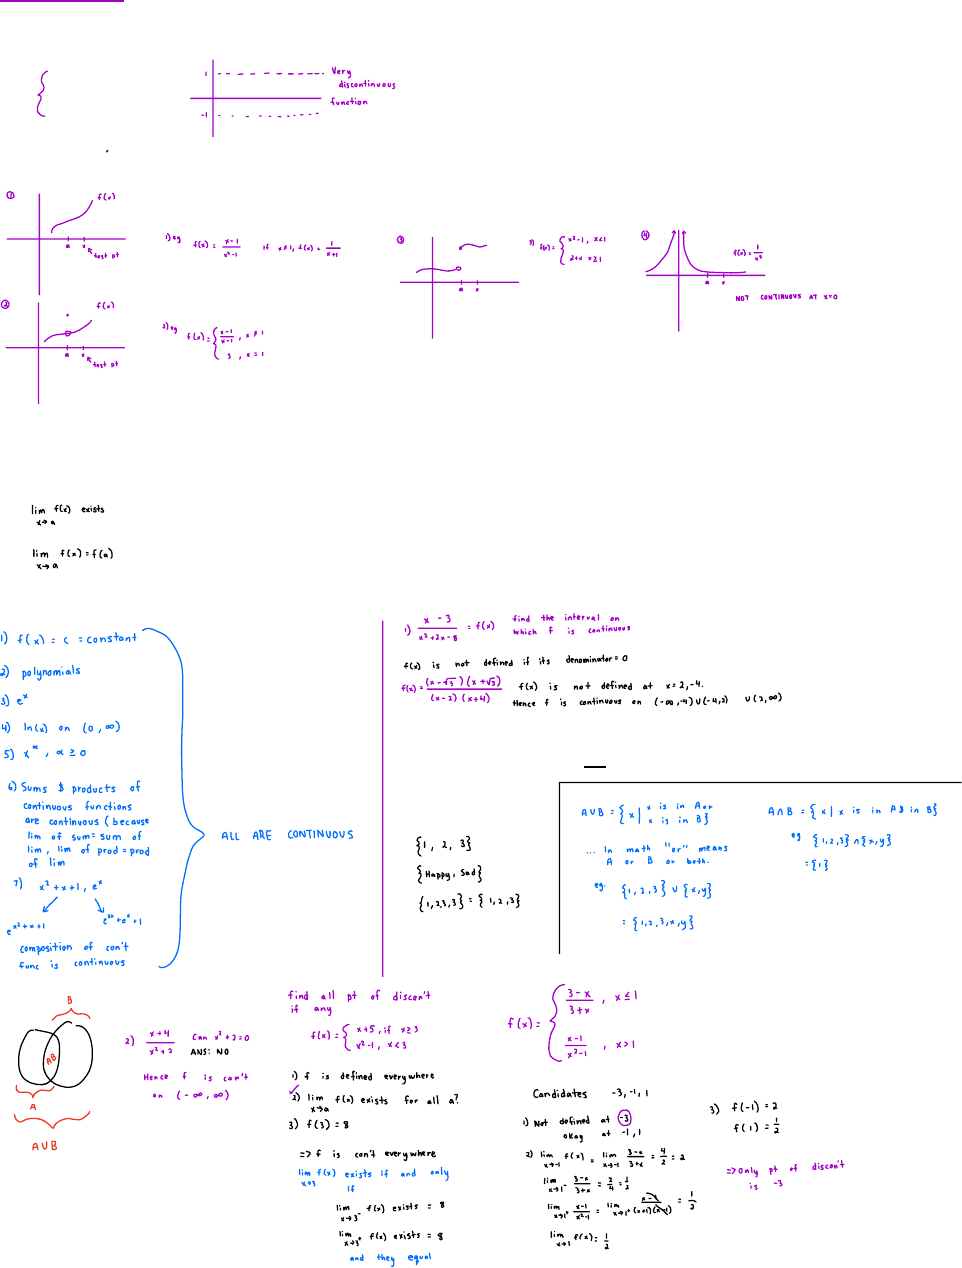 1
Very
discontinuous
function
-1
① f(x)
a x
test pt
1) eg f(x) = x-1 / x²-1 if x≠1, f(x) = 1 / x+1
② f(x)
a x
test pt
2) eg f(x) = { x-1 / x-1 , x≠1
3 , x=1
③
a x
3) f(x) = { x²-1, x<1
2+x x≥1
④
a x
NOT CONTINUOUS AT x=0
lim f(x) exists
x→a
lim f(x) = f(a)
x→a
1) f(x) = c = constant
2) polynomials
3) eˣ
4) ln(x) on (0, ∞)
5) x^α , α ≥ 0
6) Sums & products of
continuous functions
are continuous (because
lim of sum = sum of
lim, lim of prod = prod
of lim
7) x²+x+1, eˣ
e^(x²+x+1) e^(2x)+eˣ+1
composition of con't
func is continuous
ALL ARE CONTINUOUS
1) x - 3 / x²+2x-8 = f(x) find the interval on
which f is continuous
f(x) is not defined if its denominator = 0
f(x) = (x-√3)(x+√3) / (x-2)(x+4) f(x) is not defined at x=2,-4.
Hence f is continuous on (-∞,-4)∪(-4,2) ∪(2,∞)
{1, 2, 3}
{Happy, Sad}
{1,2,3,3} = {1,2,3}
A∪B = {x| x is in A or
x is in B}
... In math "or" means
A or B or both.
eg. {1,2,3} ∪ {x,y}
= {1,2,3,x,y}
A∩B = {x| x is in A & in B}
eg {1,2,3}∩{x,y}
= {1}
B
AB
A
A∪B
2) x+4 / x²+2 Can x²+2=0
ANS: NO
Hence f is con't
on (-∞,∞)
find all pt of discon't
if any
f(x) = { x+5, if x≥3
x²-1, x<3
1) f is defined everywhere
2) lim f(x) exists for all a?
x→a
3) f(3) = 8
=> f is con't everywhere
lim f(x) exists if and only
x→3
if
lim f(x) exists = 8
x→3⁻
lim f(x) exists = 8
x→3⁺
and they equal
f(x) = { 3-x / 3+x , x≤1
x-1 / x²-1 , x>1
Candidates -3,-1,1
1) Not defined at -3
okay at -1,1
2) lim f(x) = lim 3-x / 3+x = 4/2 = 2
x→-1 x→-1
lim 3-x / 3+x = 2/4 = 1/2
x→1⁻
lim x-1 / x²-1 = lim x-1 / (x+1)(x-1) = 1/2
x→1⁺ x→1⁺
lim f(x) = 1/2
x→1
3) f(-1) = 2
f(1) = 1/2
=> only pt of discon't
is -3